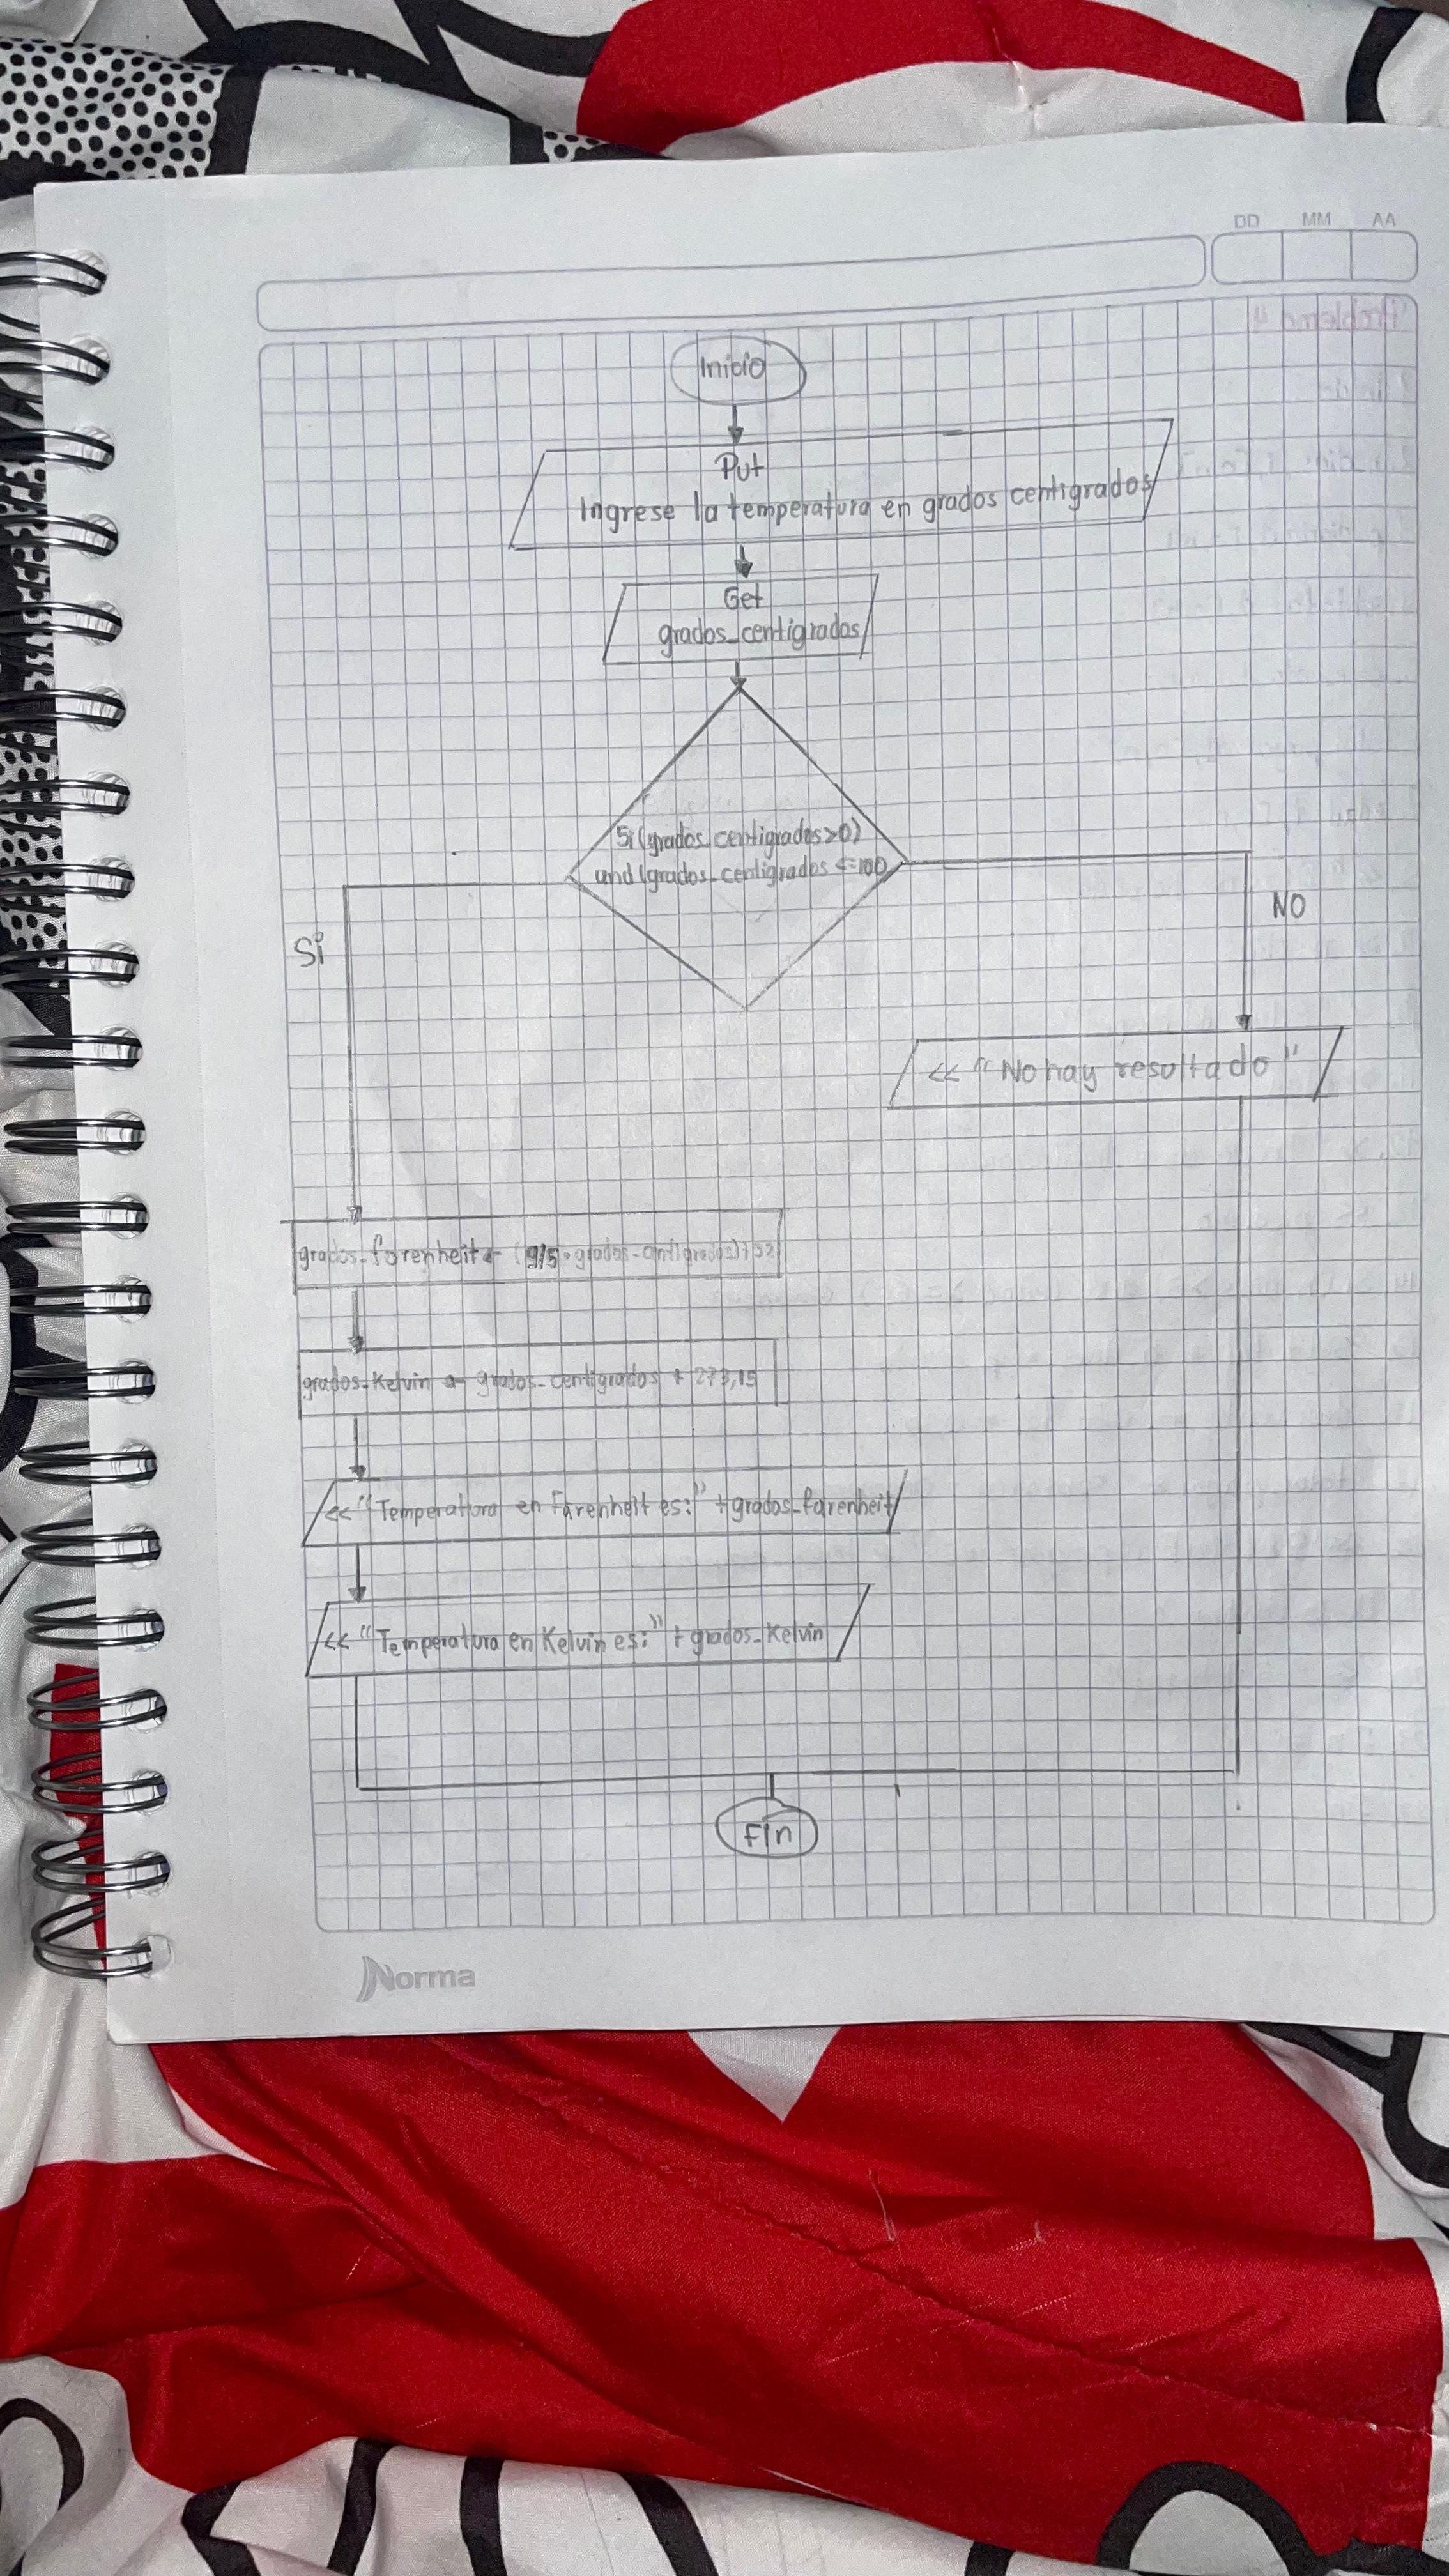 DD MM AA
Inicio
Put
Ingrese la temperatura en grados centigrados
Get
grados_centigrados
Si (grados_centigrados >0)
and (grados_centigrados <=100)
Si
NO
<< "No hay resultado"
grados_farenheit ← (9/5 * grados_centigrados) + 32
grados_Kelvin ← grados_centigrados + 273,15
<< "Temperatura en Farenheit es:" + grados_farenheit
<< "Temperatura en Kelvin es:" + grados_Kelvin
Fin
Norma